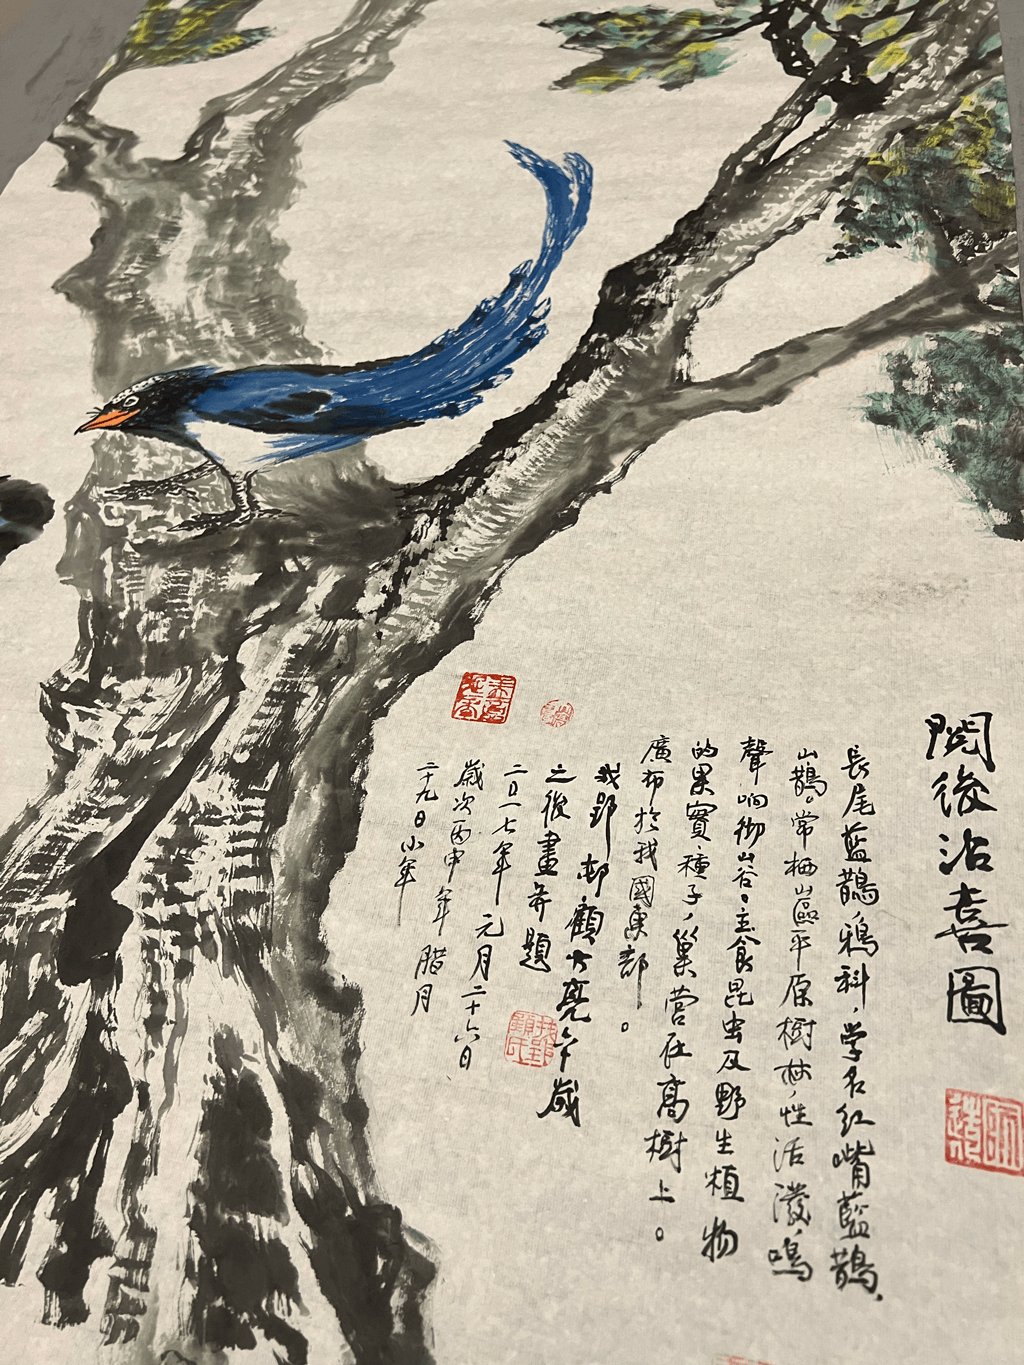 閱後沾喜圖
長尾藍鵲鴉科，学名红嘴藍鵲，
山鵲。常栖山區平原樹林，性活潑，鳴
聲响彻山谷。主食昆虫及野生植物
的果實種子，巢營在高樹上。
廣布於我國東部。
我郢邨顧大亮午歲
之後畫并題
二〇一七年元月二十六日
歲次丙申年腊月
二十九日小年